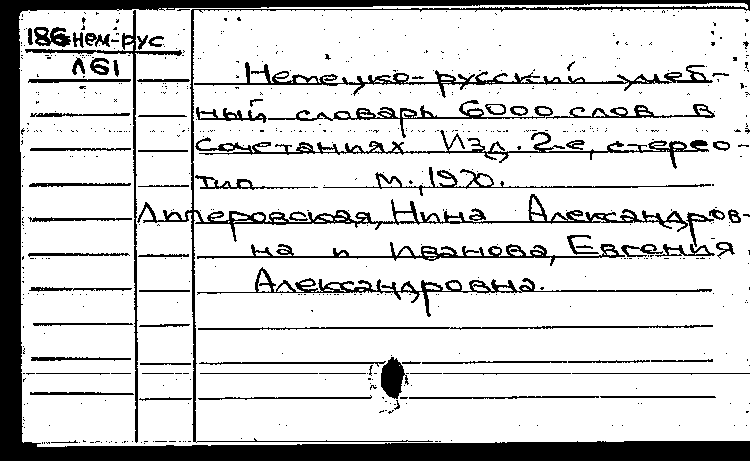 186нем-рус
Л61
Немецко-русский учеб-
ный словарь 6000 слов в
сочетаниях Изд. 2-е, стерео-
тип М., 1970.
Липеровская, Нина Александров-
на и Иванова, Евгения
Александровна.